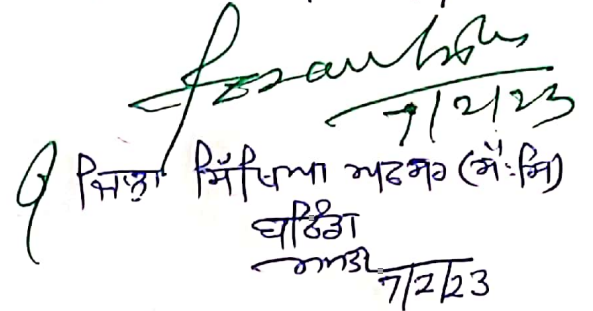 7/2/23
ਜਿਲ੍ਹਾ ਸਿੱਖਿਆ ਅਫਸਰ (ਐ:ਸਿ)
ਬਠਿੰਡਾ
7/2/23